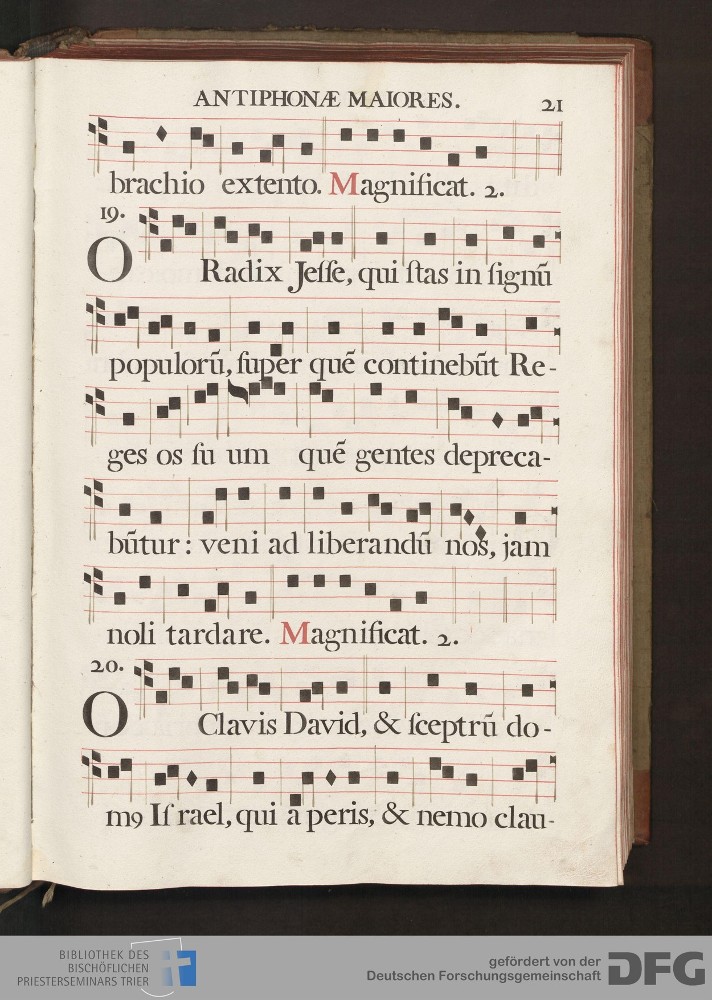 ANTIPHONÆ MAIORES. 21
brachio extento. Magnificat. 2.
19.
O Radix Jeſſe, qui ſtas in ſignū
populorū, ſuper quē continebūt Re-
ges os ſu um quē gentes depreca-
būtur: veni ad liberandū nos, jam
noli tardare. Magnificat. 2.
20.
O Clavis David, & ſceptrū do-
m9 Iſ rael, qui a peris, & nemo clau-
BIBLIOTHEK DES
BISCHÖFLICHEN
PRIESTERSEMINARS TRIER
gefördert von der
Deutschen Forschungsgemeinschaft
DFG